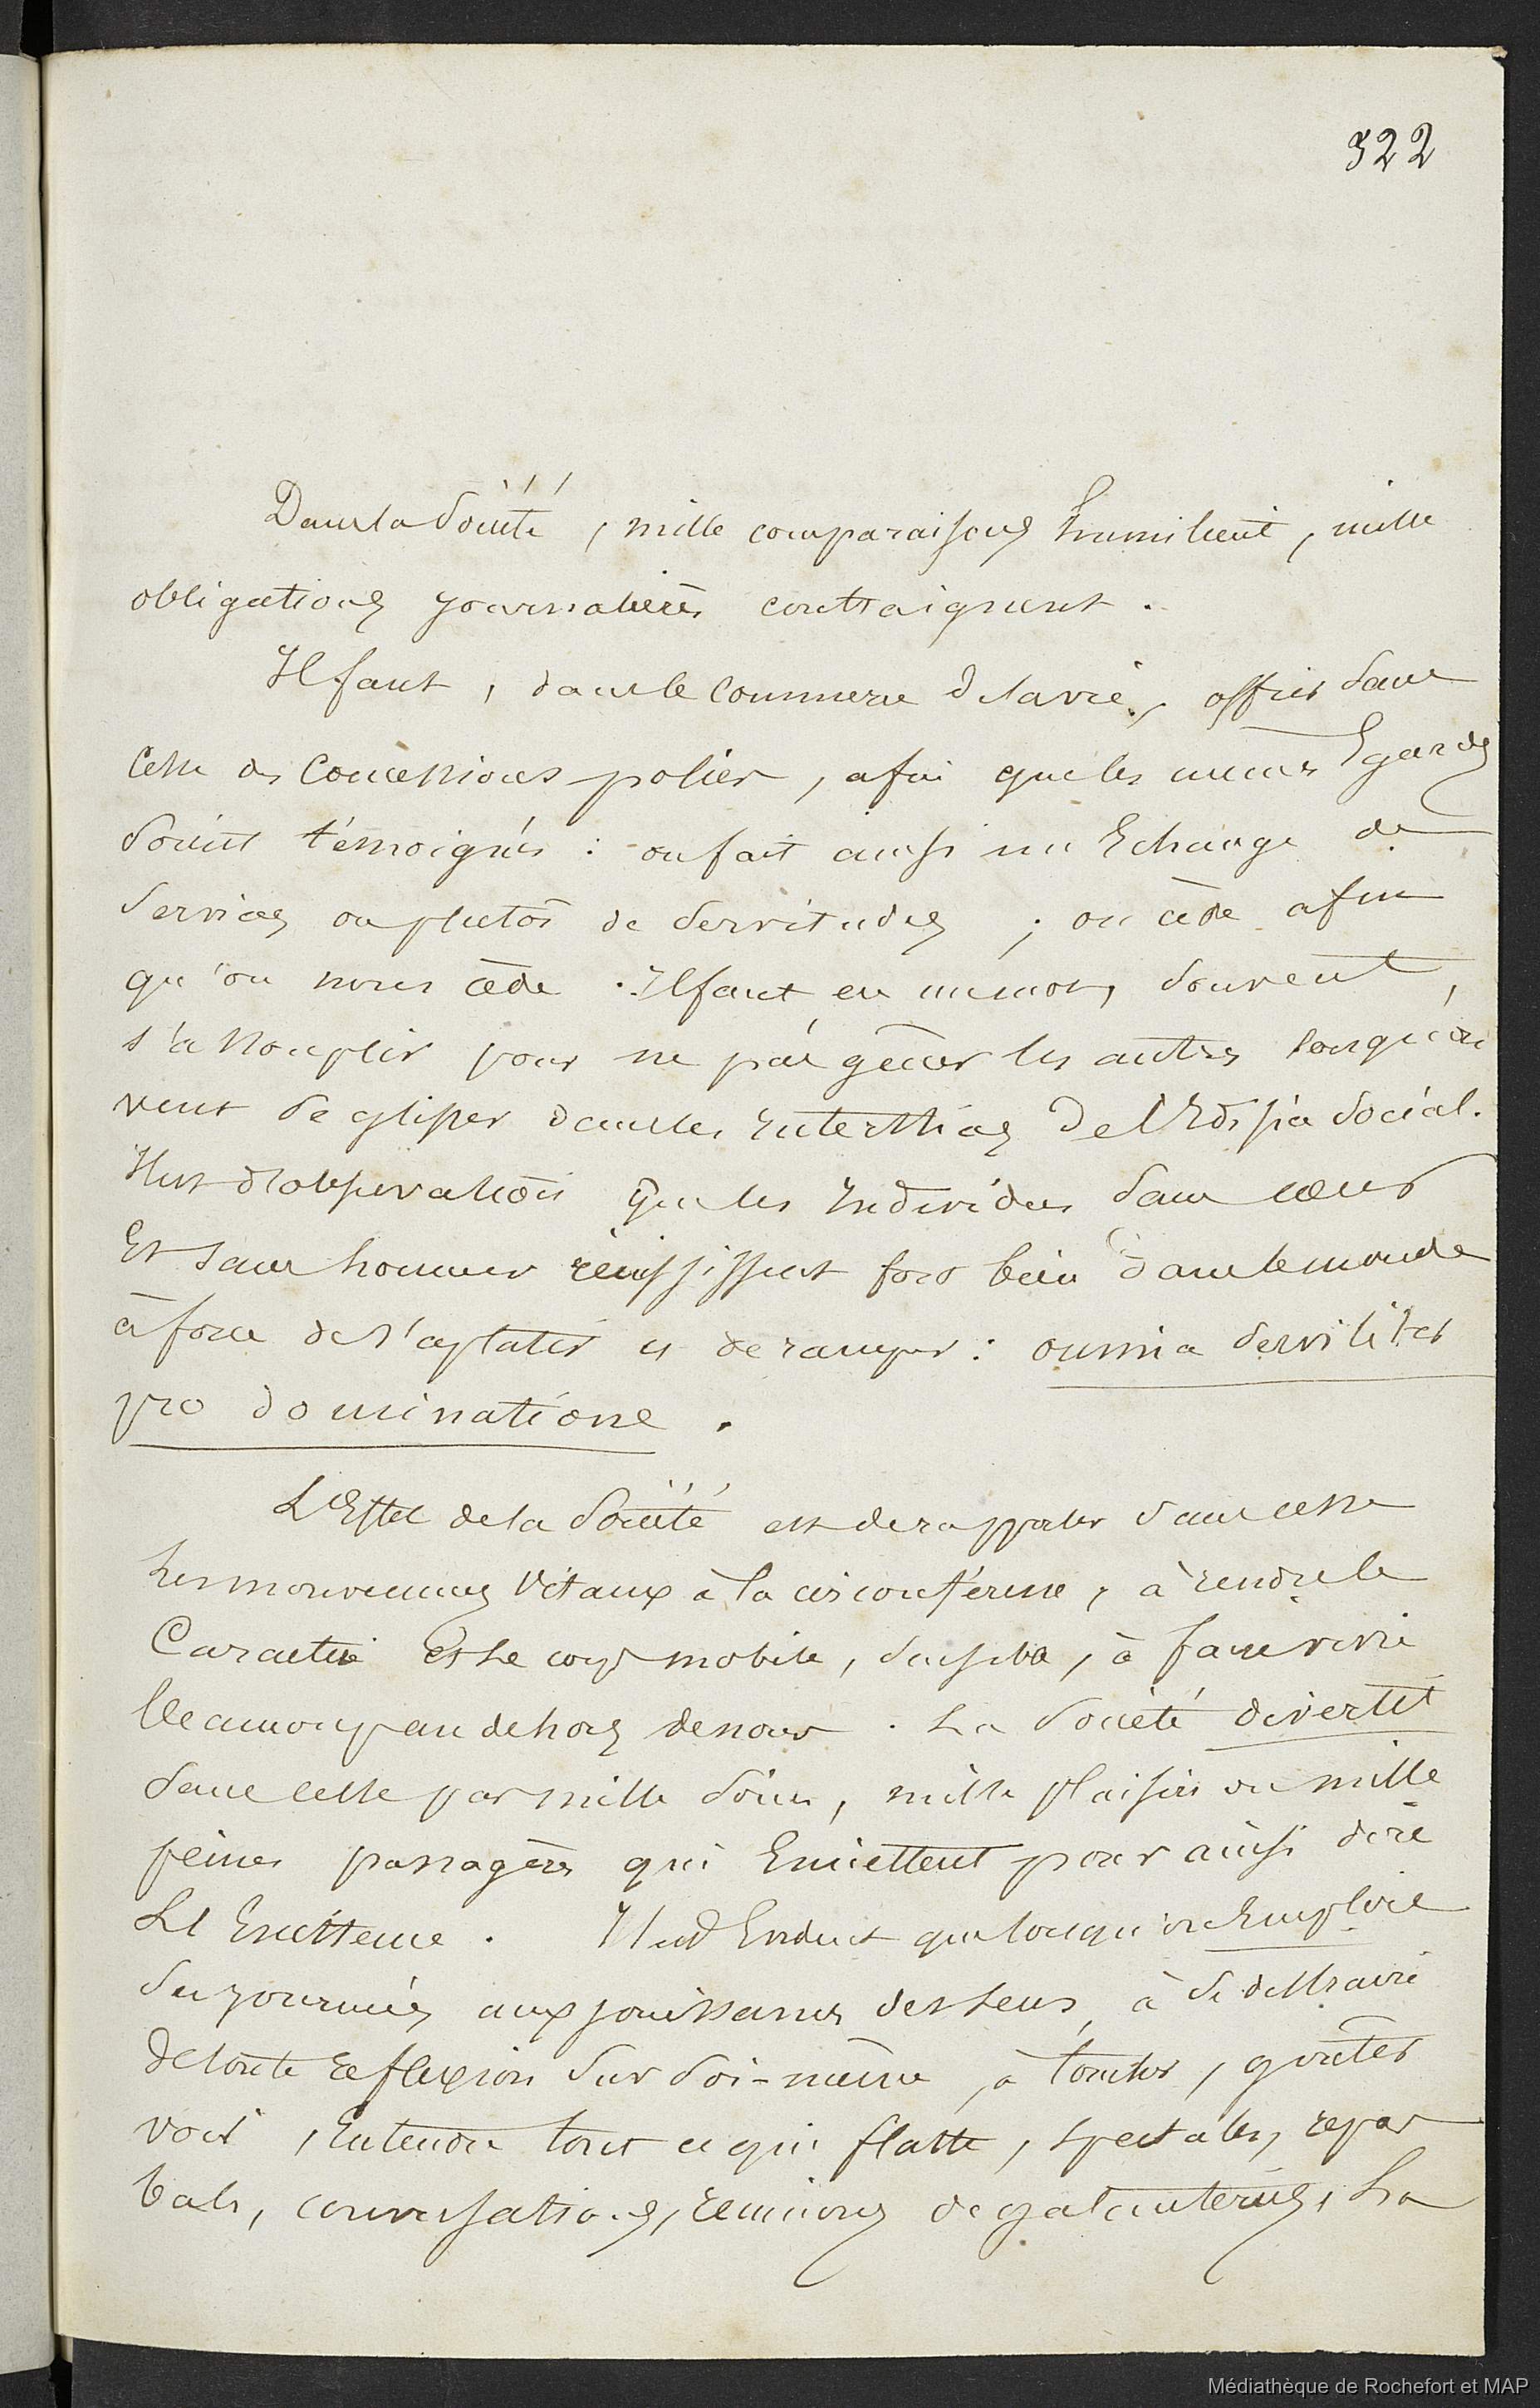 322
Dans la Société, mille comparaisons humilient, mille
obligations journalières contraignent.
Il faut, dans le Commerce de la vie, offrir sans
cesse des Concessions polies, afin que les mêmes Egards
soient témoignés : on fait ainsi un Echange de
Services ou plutôt de Servitudes ; on cède afin
qu'on nous cède. Il faut en un mot, souvent,
s'assouplir pour ne pas gêner les autres lorsqu'on
veut se glisser dans les Interstices de l'Edifice Social.
Il est d'observation que les Individus sans cœur
Et sans honneur réussissent fort bien dans le monde
à force de s'aplatir et de ramper : omnia serviliter
pro dominatione.
L'Effet de la Société est de rapporter sans cesse
les mouvemens Vitaux à la circonférence, à rendre le
Caractère et le corps mobile, sensible, à faire vivre
beaucoup au dehors de nous. La Société divertit
sans cesse par mille soins, mille plaisirs ou mille
peines passagères qui Emiettent pour ainsi dire
L'Existence. Il est Evident que lorsqu'on Emploie
ses journées aux jouissances des sens, à se distraire
de toute réflexion sur soi-même, à toucher, goûter
voir, Entendre tout ce qui flatte, spectacles, repas
bals, conversations, réunions de galanteries, La
Médiathèque de Rochefort et MAP